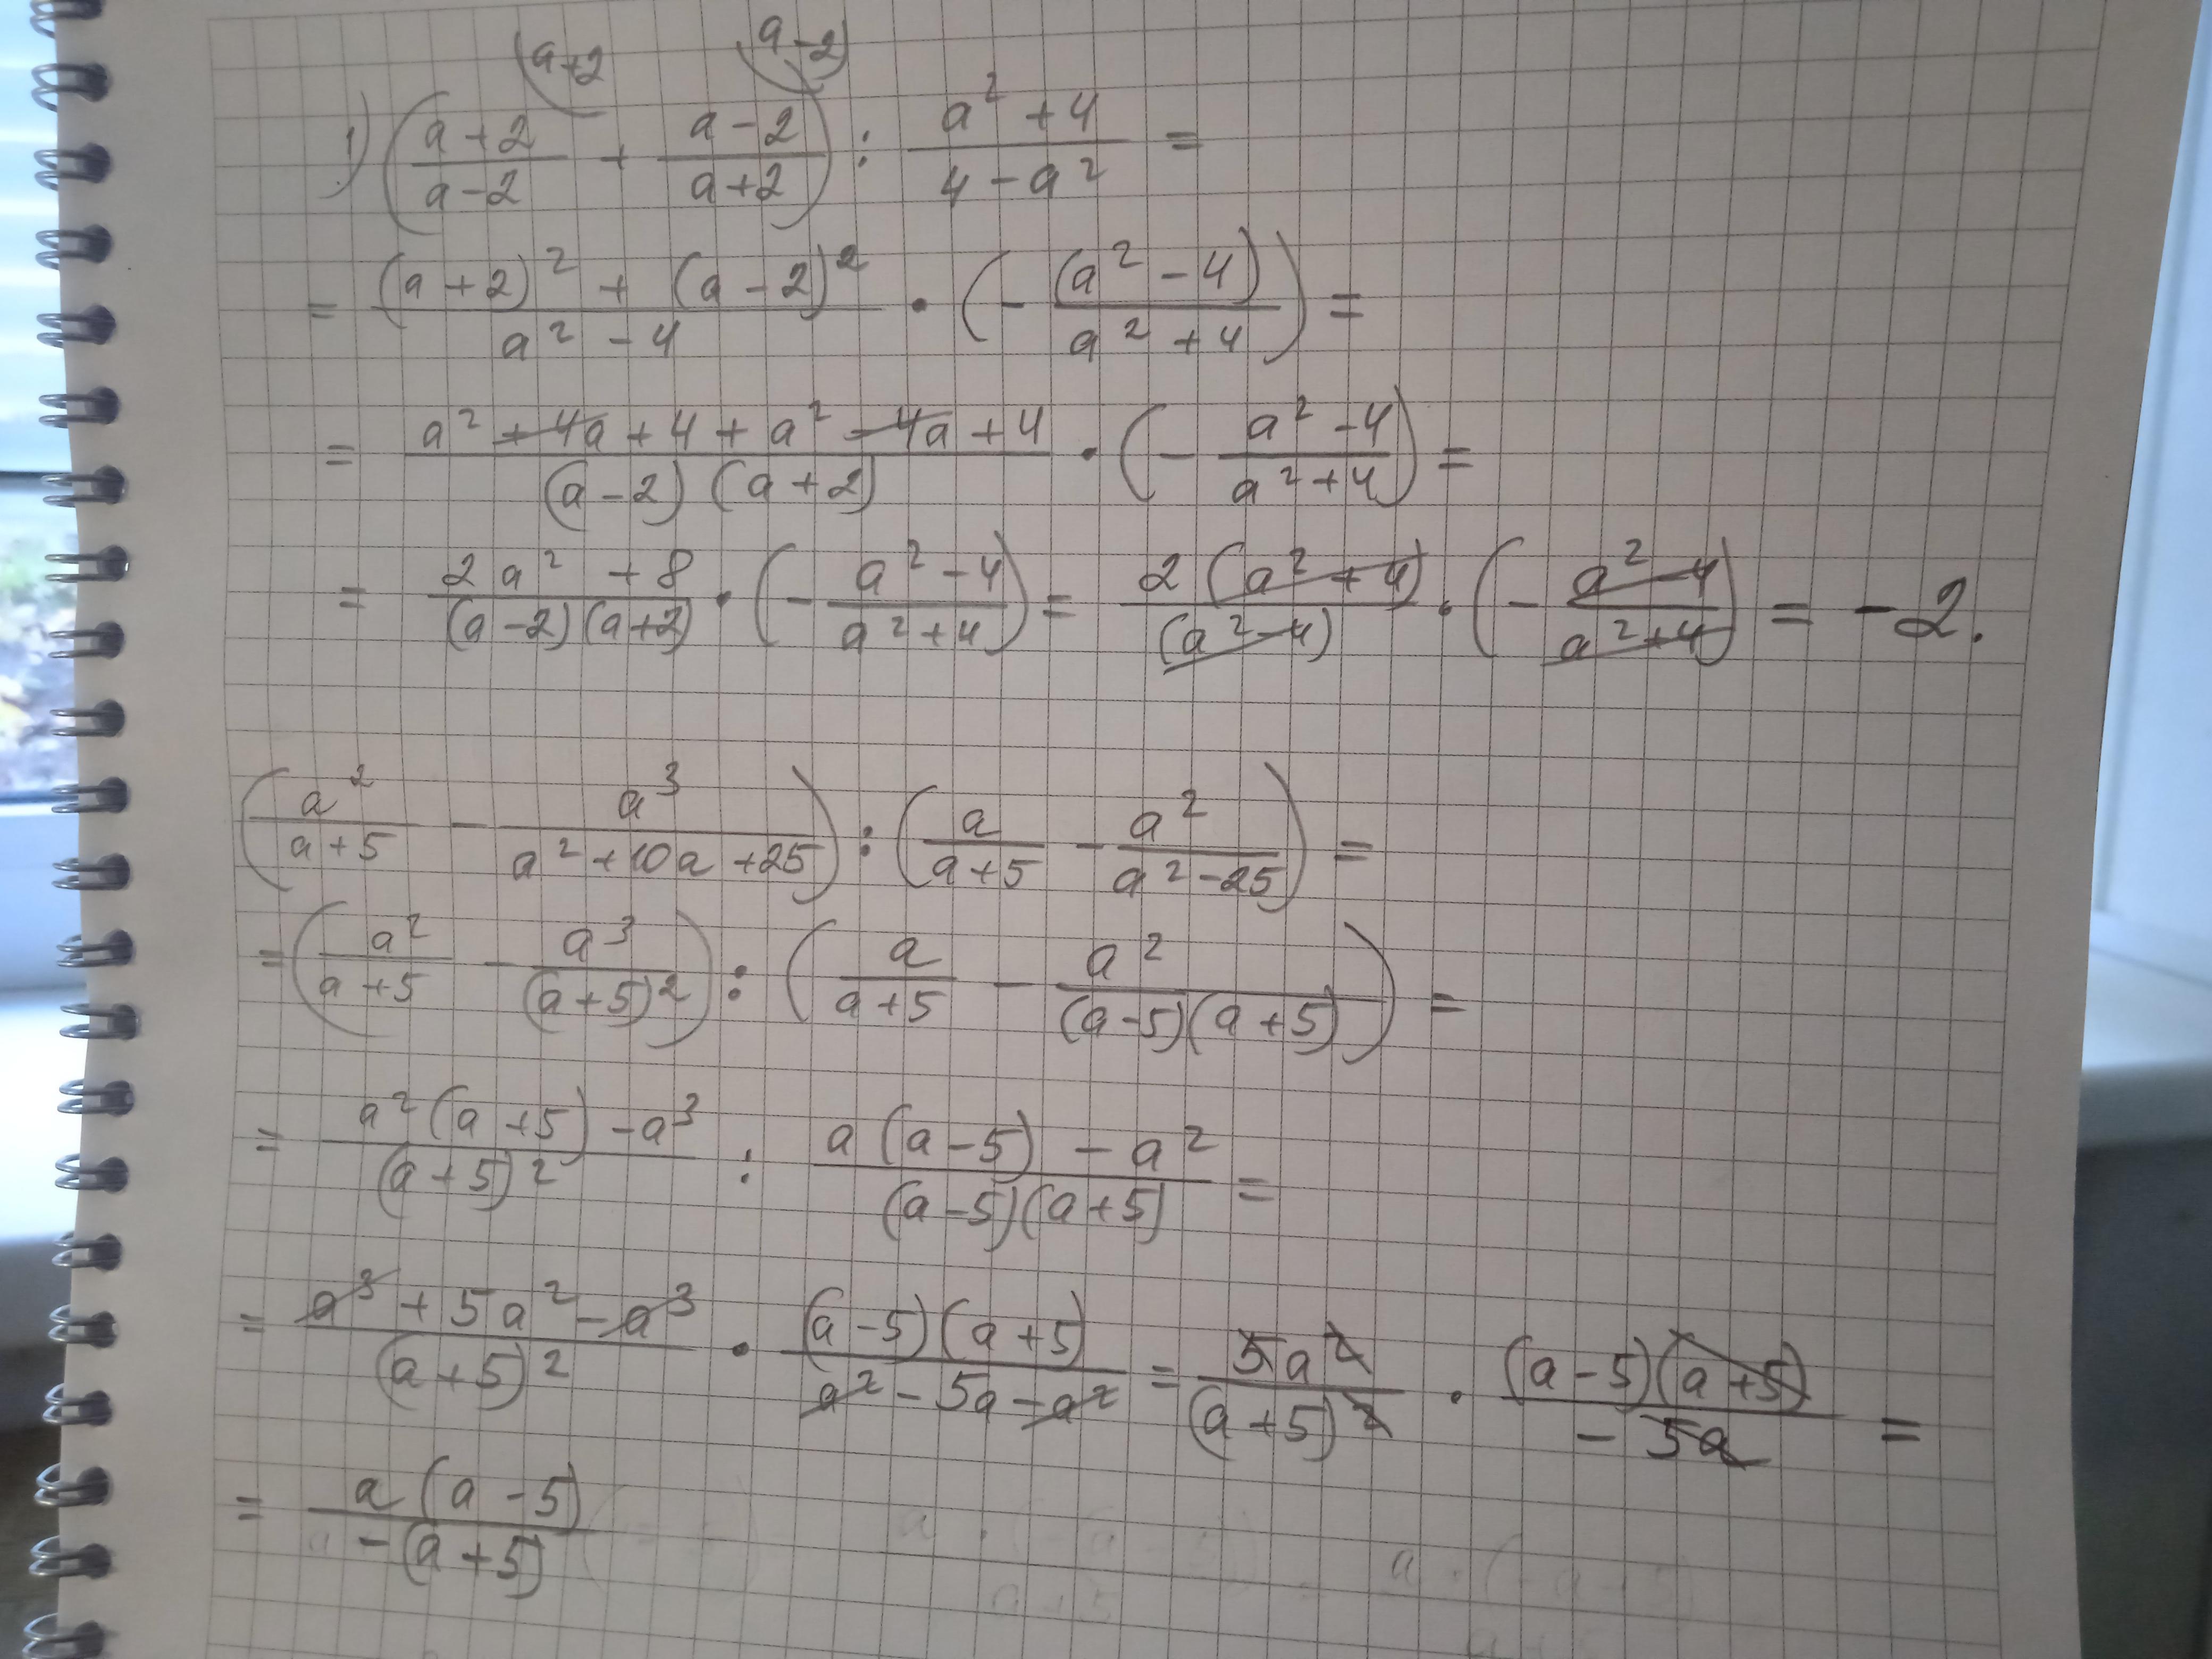 (a+2 (a-2)
1) ((a+2)/(a-2) + (a-2)/(a+2)) : (a² + 4)/(4 - a²) =
= ((a+2)² + (a-2)²)/(a² - 4) · (- (a² - 4)/(a² + 4)) =
= (a² + 4a + 4 + a² - 4a + 4)/((a-2)(a+2)) · (- (a² - 4)/(a² + 4)) =
= (2a² + 8)/((a-2)(a+2)) · (- (a² - 4)/(a² + 4)) = 2(a² + 4)/(a² - 4) · (- (a² - 4)/(a² + 4)) = -2.
(a²/(a+5) - a³/(a² + 10a + 25)) : (a/(a+5) - a²/(a² - 25)) =
= (a²/(a+5) - a³/(a+5)²) : (a/(a+5) - a²/((a-5)(a+5))) =
= (a²(a+5) - a³)/(a+5)² : (a(a-5) - a²)/((a-5)(a+5)) =
= (a³ + 5a² - a³)/(a+5)² · ((a-5)(a+5))/(a² - 5a - a²) = 5a²/(a+5)² · ((a-5)(a+5))/(-5a) =
= a(a-5)/(-(a+5))